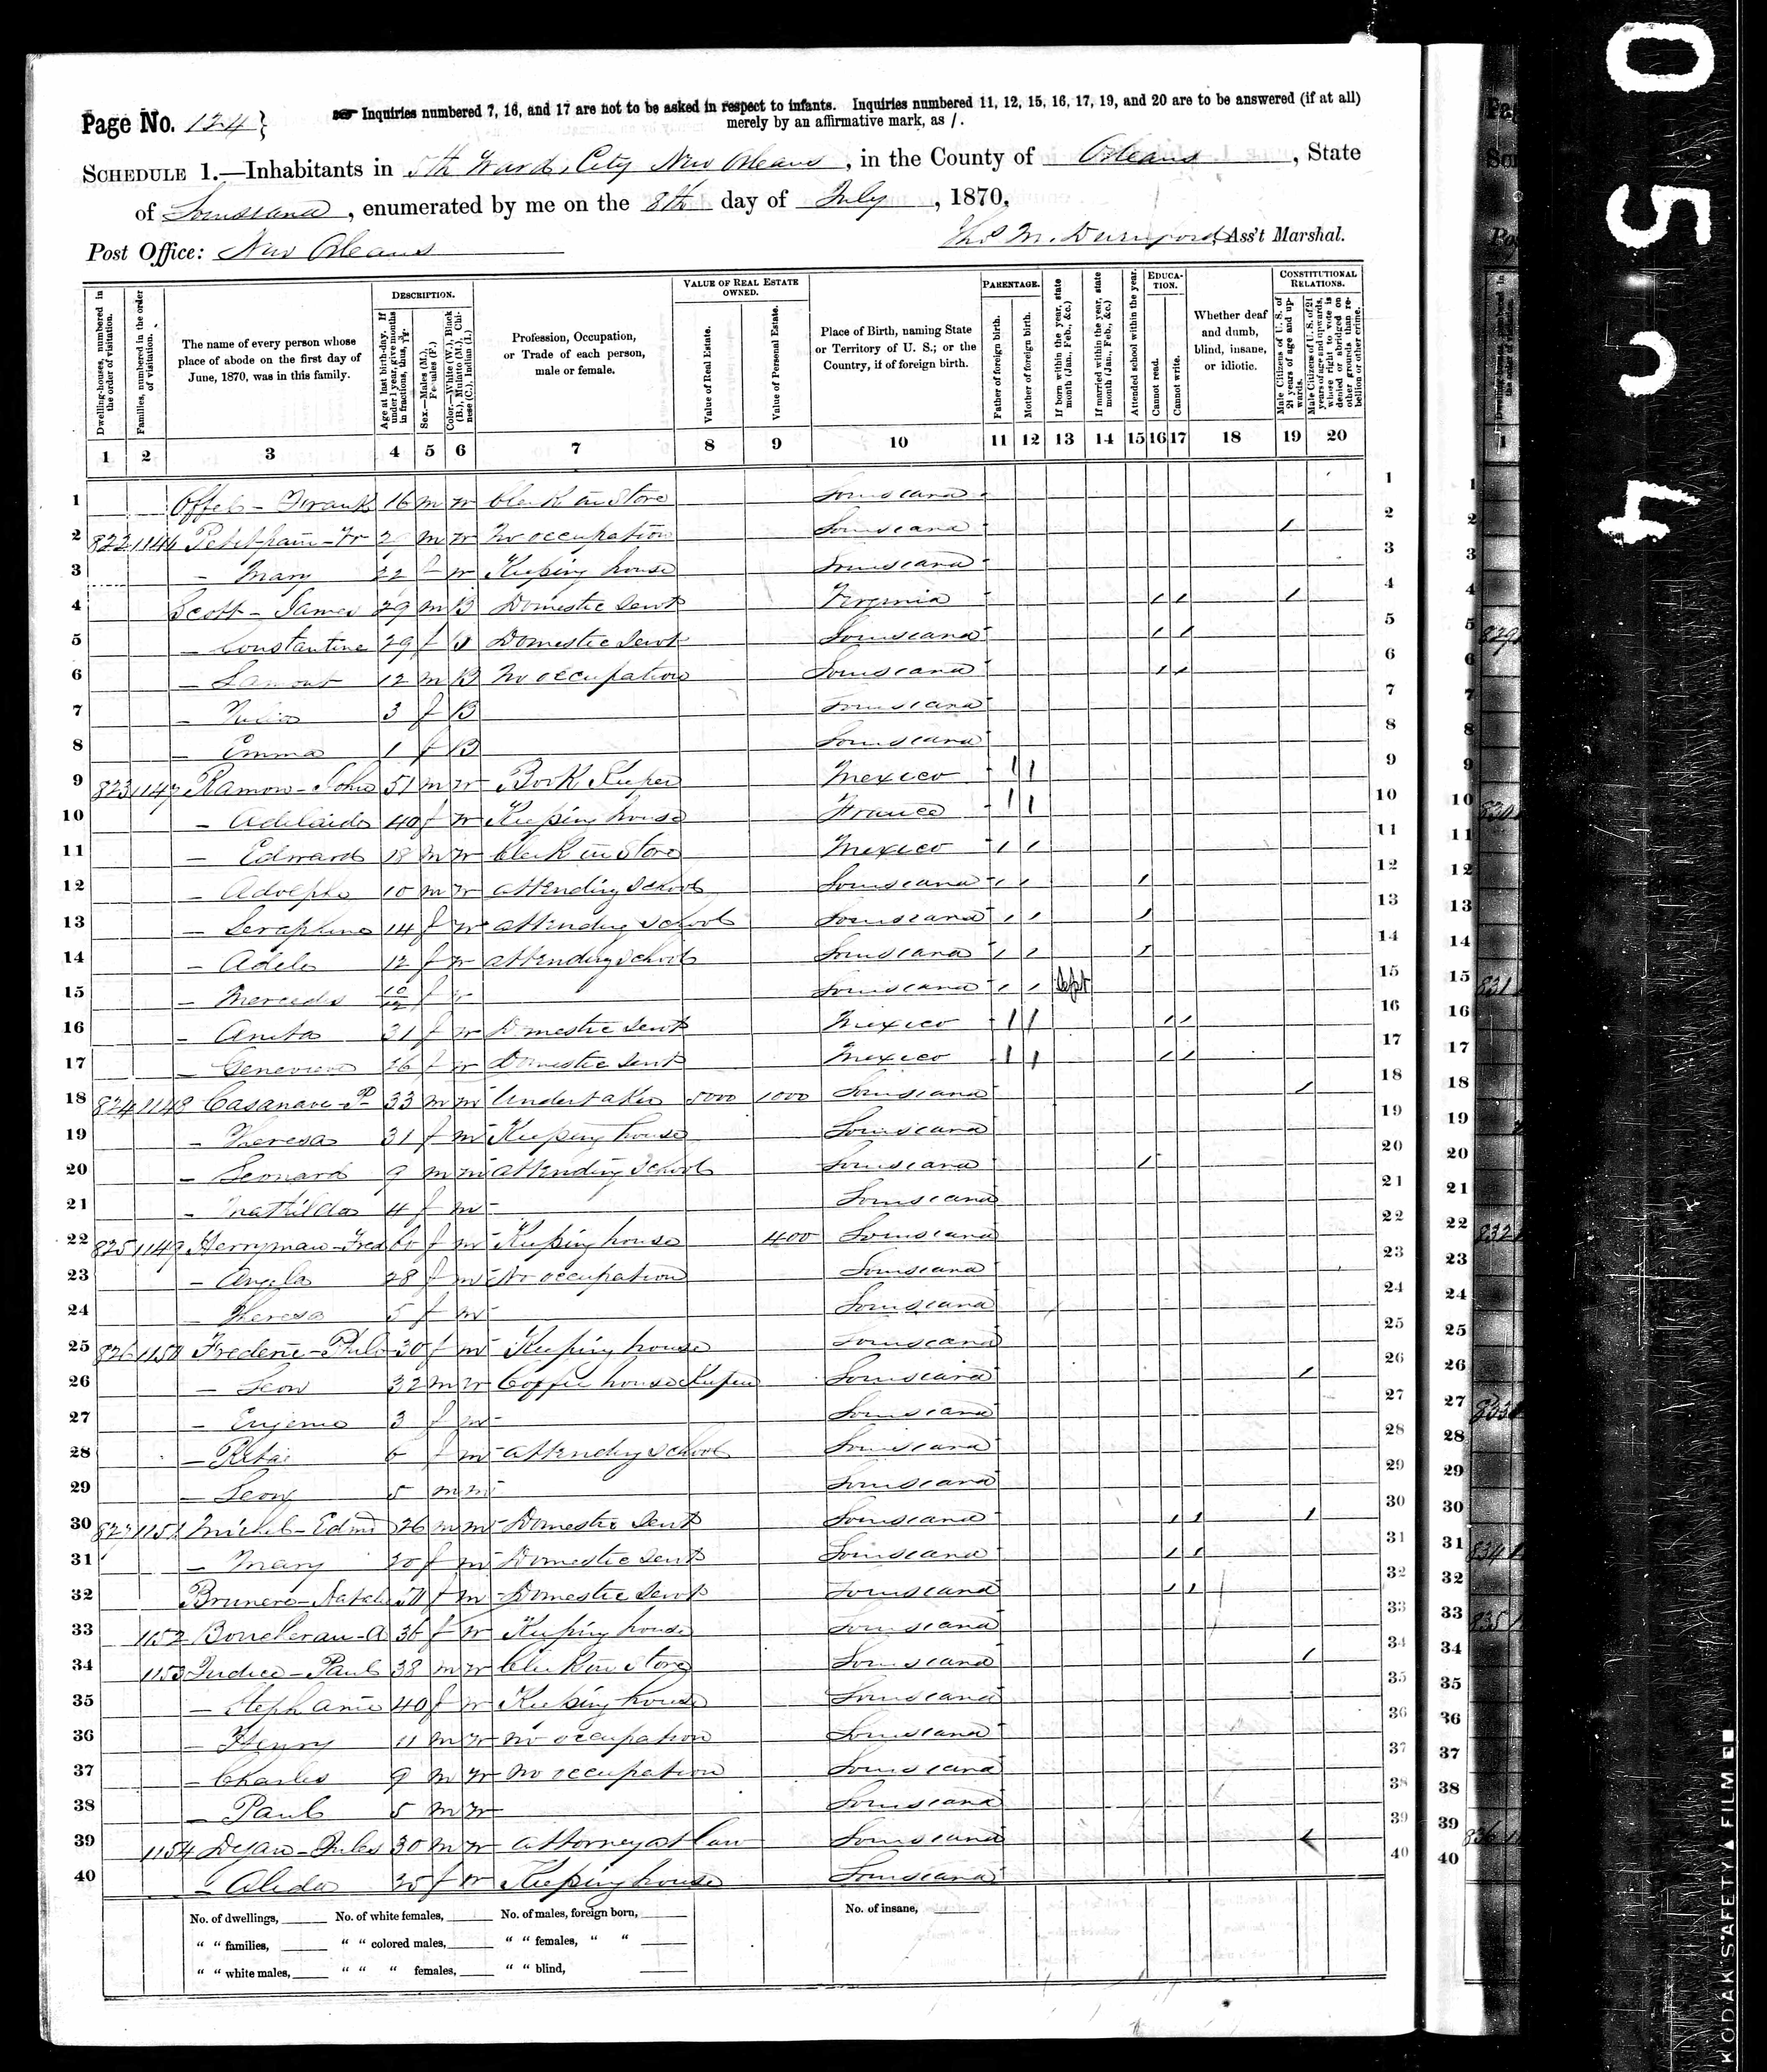 Page No. 124
Inquiries numbered 7, 16, and 17 are not to be asked in respect to infants. Inquiries numbered 11, 12, 15, 16, 17, 19, and 20 are to be answered (if at all)
merely by an affirmative mark, as /.
SCHEDULE 1.—Inhabitants in 5th Ward, City New Orleans, in the County of Orleans, State
of Louisiana, enumerated by me on the 8th day of July, 1870.
Post Office: New Orleans
Thos M. Durnford, Ass't Marshal.
Dwelling-houses, numbered in the order of visitation.
Families, numbered in the order of visitation.
The name of every person whose place of abode on the first day of June, 1870, was in this family.
DESCRIPTION.
Age at last birth-day. If under 1 year, give months in fractions, thus,
Sex.—Males (M.), Females (F.)
Color.—White (W.), Black (B.), Mulatto (M.), Chinese (C.), Indian (I.)
Profession, Occupation, or Trade of each person, male or female.
VALUE OF REAL ESTATE OWNED.
Value of Real Estate.
Value of Personal Estate.
Place of Birth, naming State or Territory of U. S.; or the Country, if of foreign birth.
PARENTAGE.
Father of foreign birth.
Mother of foreign birth.
If born within the year, state month (Jan., Feb., &c.)
If married within the year, state month (Jan., Feb., &c.)
Attended school within the year.
EDUCATION.
Cannot read.
Cannot write.
Whether deaf and dumb, blind, insane, or idiotic.
CONSTITUTIONAL RELATIONS.
Male Citizens of U. S. of 21 years of age and upwards.
Male Citizens of U. S. of 21 years of age and upwards, whose right to vote is denied or abridged on other grounds than rebellion or other crime.
1 2 3 4 5 6 7 8 9 10 11 12 13 14 15 16 17 18 19 20
1 Frank 16 m w Clerk in Store Louisiana 1
2 822 1146 m w No occupation Louisiana / 2
3 — Mary 22 f w Keeping house Louisiana 3
4 Scott — James 29 m B Domestic Servt Virginia / / / 4
5 — Constantine 29 f B Domestic Servt Louisiana / / 5
6 — Lamont 12 m B No occupation Louisiana / / 6
7 — Julia 3 f B Louisiana 7
8 — Emma 1 f B Louisiana 8
9 823 1147 Ramon — John 51 m w Book Keeper Mexico / / 9
10 — Adelaide 40 f w Keeping house France / / 10
11 — Edward 18 m w Clerk in Store Mexico / / 11
12 — Adolphe 10 m w attending school Louisiana / / / 12
13 — Seraphine 14 f w attending school Louisiana / / / 13
14 — Adele 12 f w attending school Louisiana / / / 14
15 — Mercedes 10/12 f w Louisiana / / Sept 15
16 — Anita 31 f w Domestic Servt Mexico / / / / 16
17 — Genevieve 26 f w Domestic Servt Mexico / / / / 17
18 824 1148 Casanave — P 33 m m Undertaker 5000 1000 Louisiana / 18
19 — Theresa 31 f m Keeping house Louisiana 19
20 — Leonard 9 m m attending school Louisiana / 20
21 — Mathilda 4 f m Louisiana 21
22 825 1149 Herryman — Fred 60 f m Keeping house 400 Louisiana 22
23 — Angela 28 f m No occupation Louisiana 23
24 — Theresa 5 f m Louisiana 24
25 826 1150 Frederic — 30 f m Keeping house Louisiana 25
26 — Leon 32 m w Coffee house Keeper Louisiana / 26
27 — Eugenie 3 f m Louisiana 27
28 — 6 f m attending school Louisiana 28
29 — Leon 5 m m Louisiana 29
30 827 1151 Michel — Edmd 26 m m Domestic Servt Louisiana / / / 30
31 — Mary 20 f m Domestic Servt Louisiana / / 31
32 f m Domestic Servt Louisiana / / 32
33 1152 Boucherau — A 36 f w Keeping house Louisiana 33
34 1153 Judice — Paul 38 m w Clerk in Store Louisiana / 34
35 — Stephanie 40 f w Keeping house Louisiana 35
36 — Henry 11 m w No occupation Louisiana 36
37 — Charles 9 m w No occupation Louisiana 37
38 — Paul 5 m w Louisiana 38
39 1154 Dejan — Jules 30 m w attorney at law Louisiana / 39
40 — Aleda f w Keeping house Louisiana 40
No. of dwellings, No. of white females, No. of males, foreign born, No. of insane,
" " families, " " colored males, " " females, " "
" " white males, " " " females, " " blind,
0504
KODAK SAFETY FILM